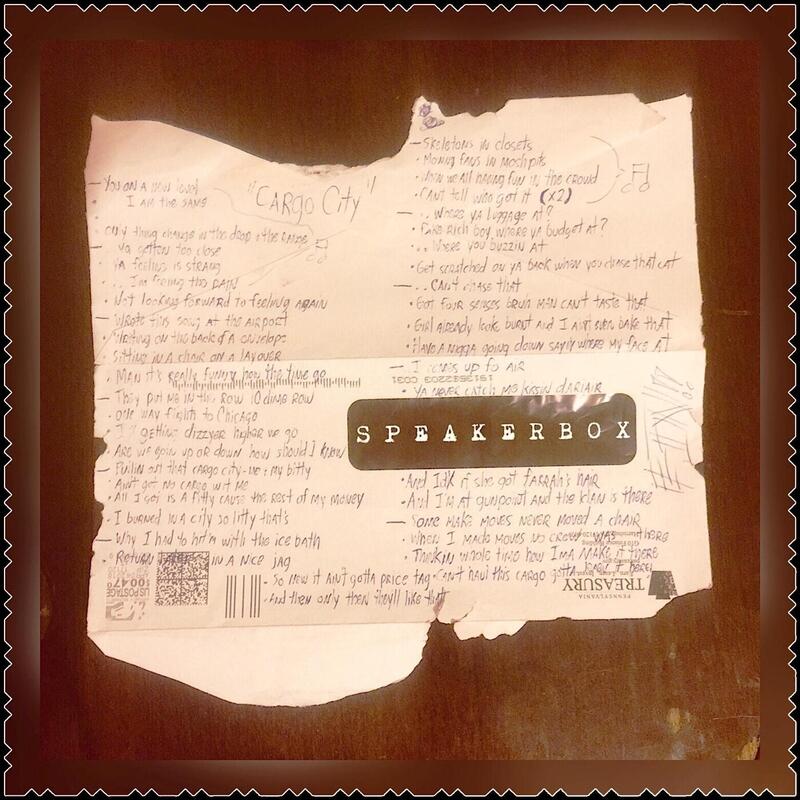 "CARGO CITY"
— You on a new level
• I am the same
• only thing change in the drop & the RANGE
— ya getten too close
• ya feeling is strang
• ... I'm feeling the PAIN
• Not looking forward to feeling again
— Wrote this song at the airport
• Writing on the back of a envelope
• Sitting in a chair on a layover
• Man it's really funny how the time go
— They put me in the row 10 dime row
• one way flight to Chicago
• I'm getting dizzyer higher we go
• Are we goin up or down how should I know
— Pullin out that cargo city me & my bitty
• Ain't got no cargo wit me
• All I got is a fitty cause the rest of my money
• I burned in a city so litty that's
— Why I had to hit'm with the ice bath
• Return in a nice jag
• So now it ain't gotta price tag
• And then only then they'll like that
— Skeletons in closets
• Moving fans in moshpits
• When we all having fun in the crowd
• Can't tell who got it (x2)
— .. Where ya luggage at?
• Fake rich boy where ya budget at?
• .. Where you buzzin at
• Get scratched on ya back when you chase that cat
— ... Can't chase that
• Got four senses bruh man can't taste that
• Girl already look burnt and I ain't even bake that
• Have a nigga going down sayin where my face at
— I comes up fo air
• Ya never catch me
SPEAKERBOX
• And IDK if she got FARRAH'S HAIR
• And I'm at gunpoint and the klan is there
— Some make moves never moved a chair
• When I made moves no crowd was there
• Thinkin whole time how Ima make it there
• Can't haul this cargo gotta leave it here!
US POSTAGE
PENNSYLVANIA
TREASURY